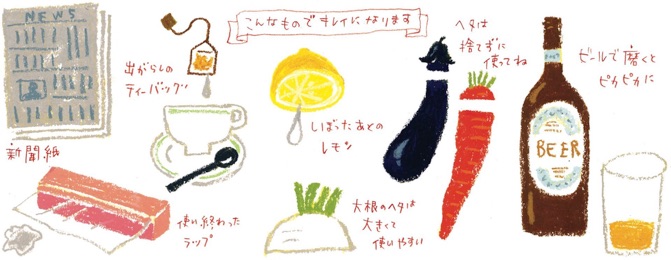 こんなものでキレイになります
NEWS
新聞紙
出がらしの
ティーバッグ
しぼったあとの
レモン
ヘタは
捨てずに
使ってね
ビールで磨くと
ピカピカに
BEER
使い終わった
ラップ
大根のヘタは
大きくて
使いやすい